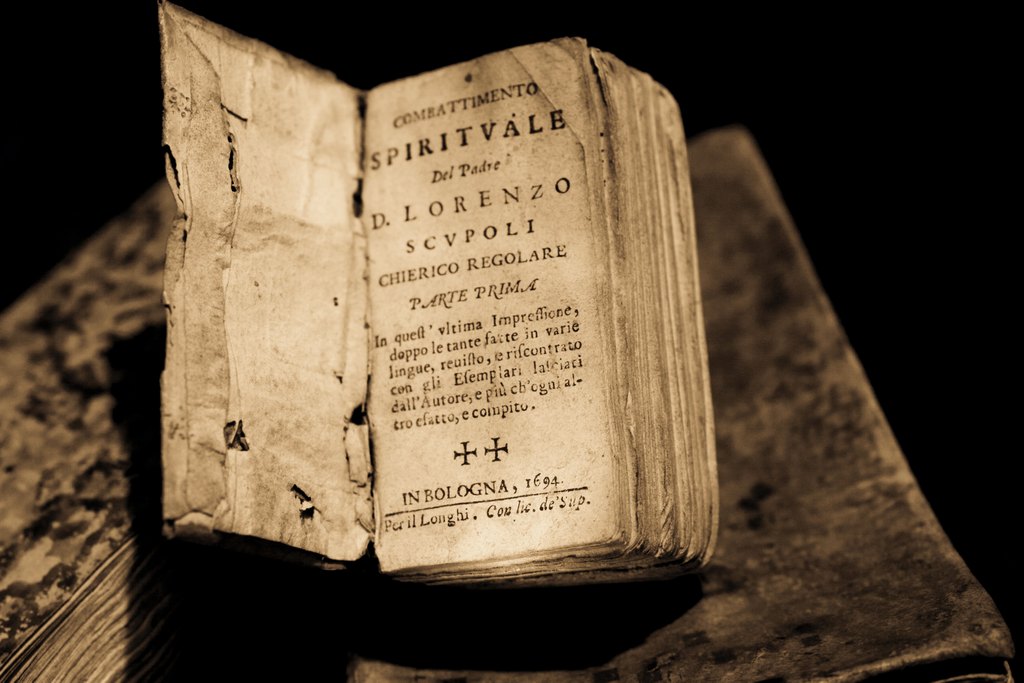 COMBATTIMENTO
SPIRITVALE
Del Padre
D. LORENZO
SCVPOLI
CHIERICO REGOLARE
PARTE PRIMA
In queſt' vltima Impreſſione,
doppo le tante fatte in varie
lingue, reuiſto, e riſcontrato
con gli Eſemplari laſciati
dall'Autore, e più ch'ogni al-
tro eſatto, e compito.
✢✢
IN BOLOGNA, 1694.
Per il Longhi. Con lic. de' Sup.